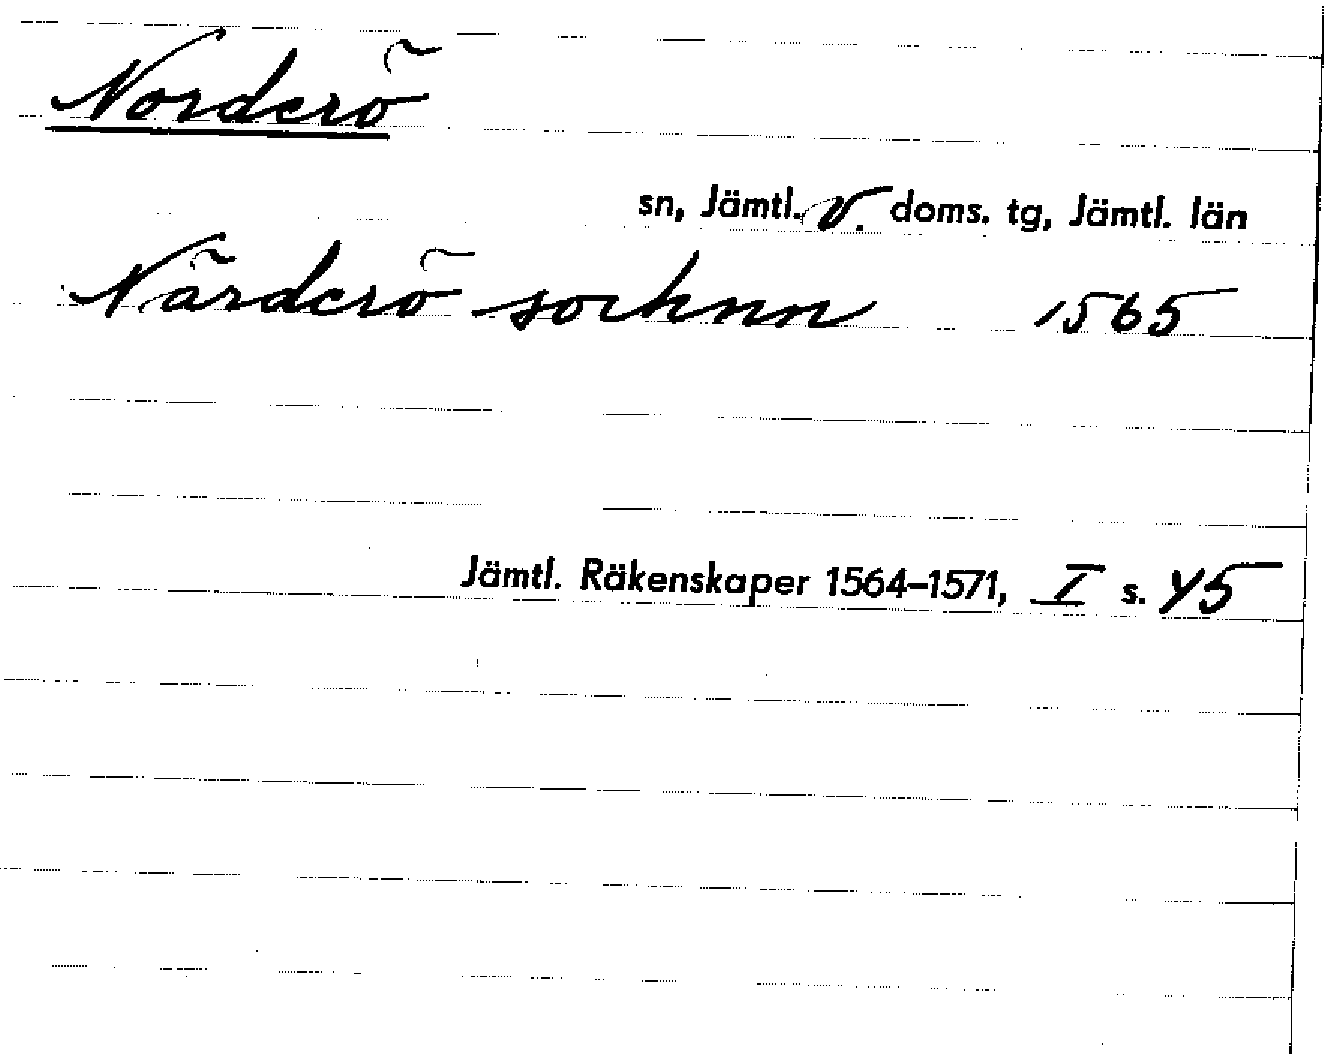 Norderö
sn, Jämtl. v. doms. tg, Jämtl. län
Närderö socknn 1565
Jämtl. Räkenskaper 1564–1571, I s. 45